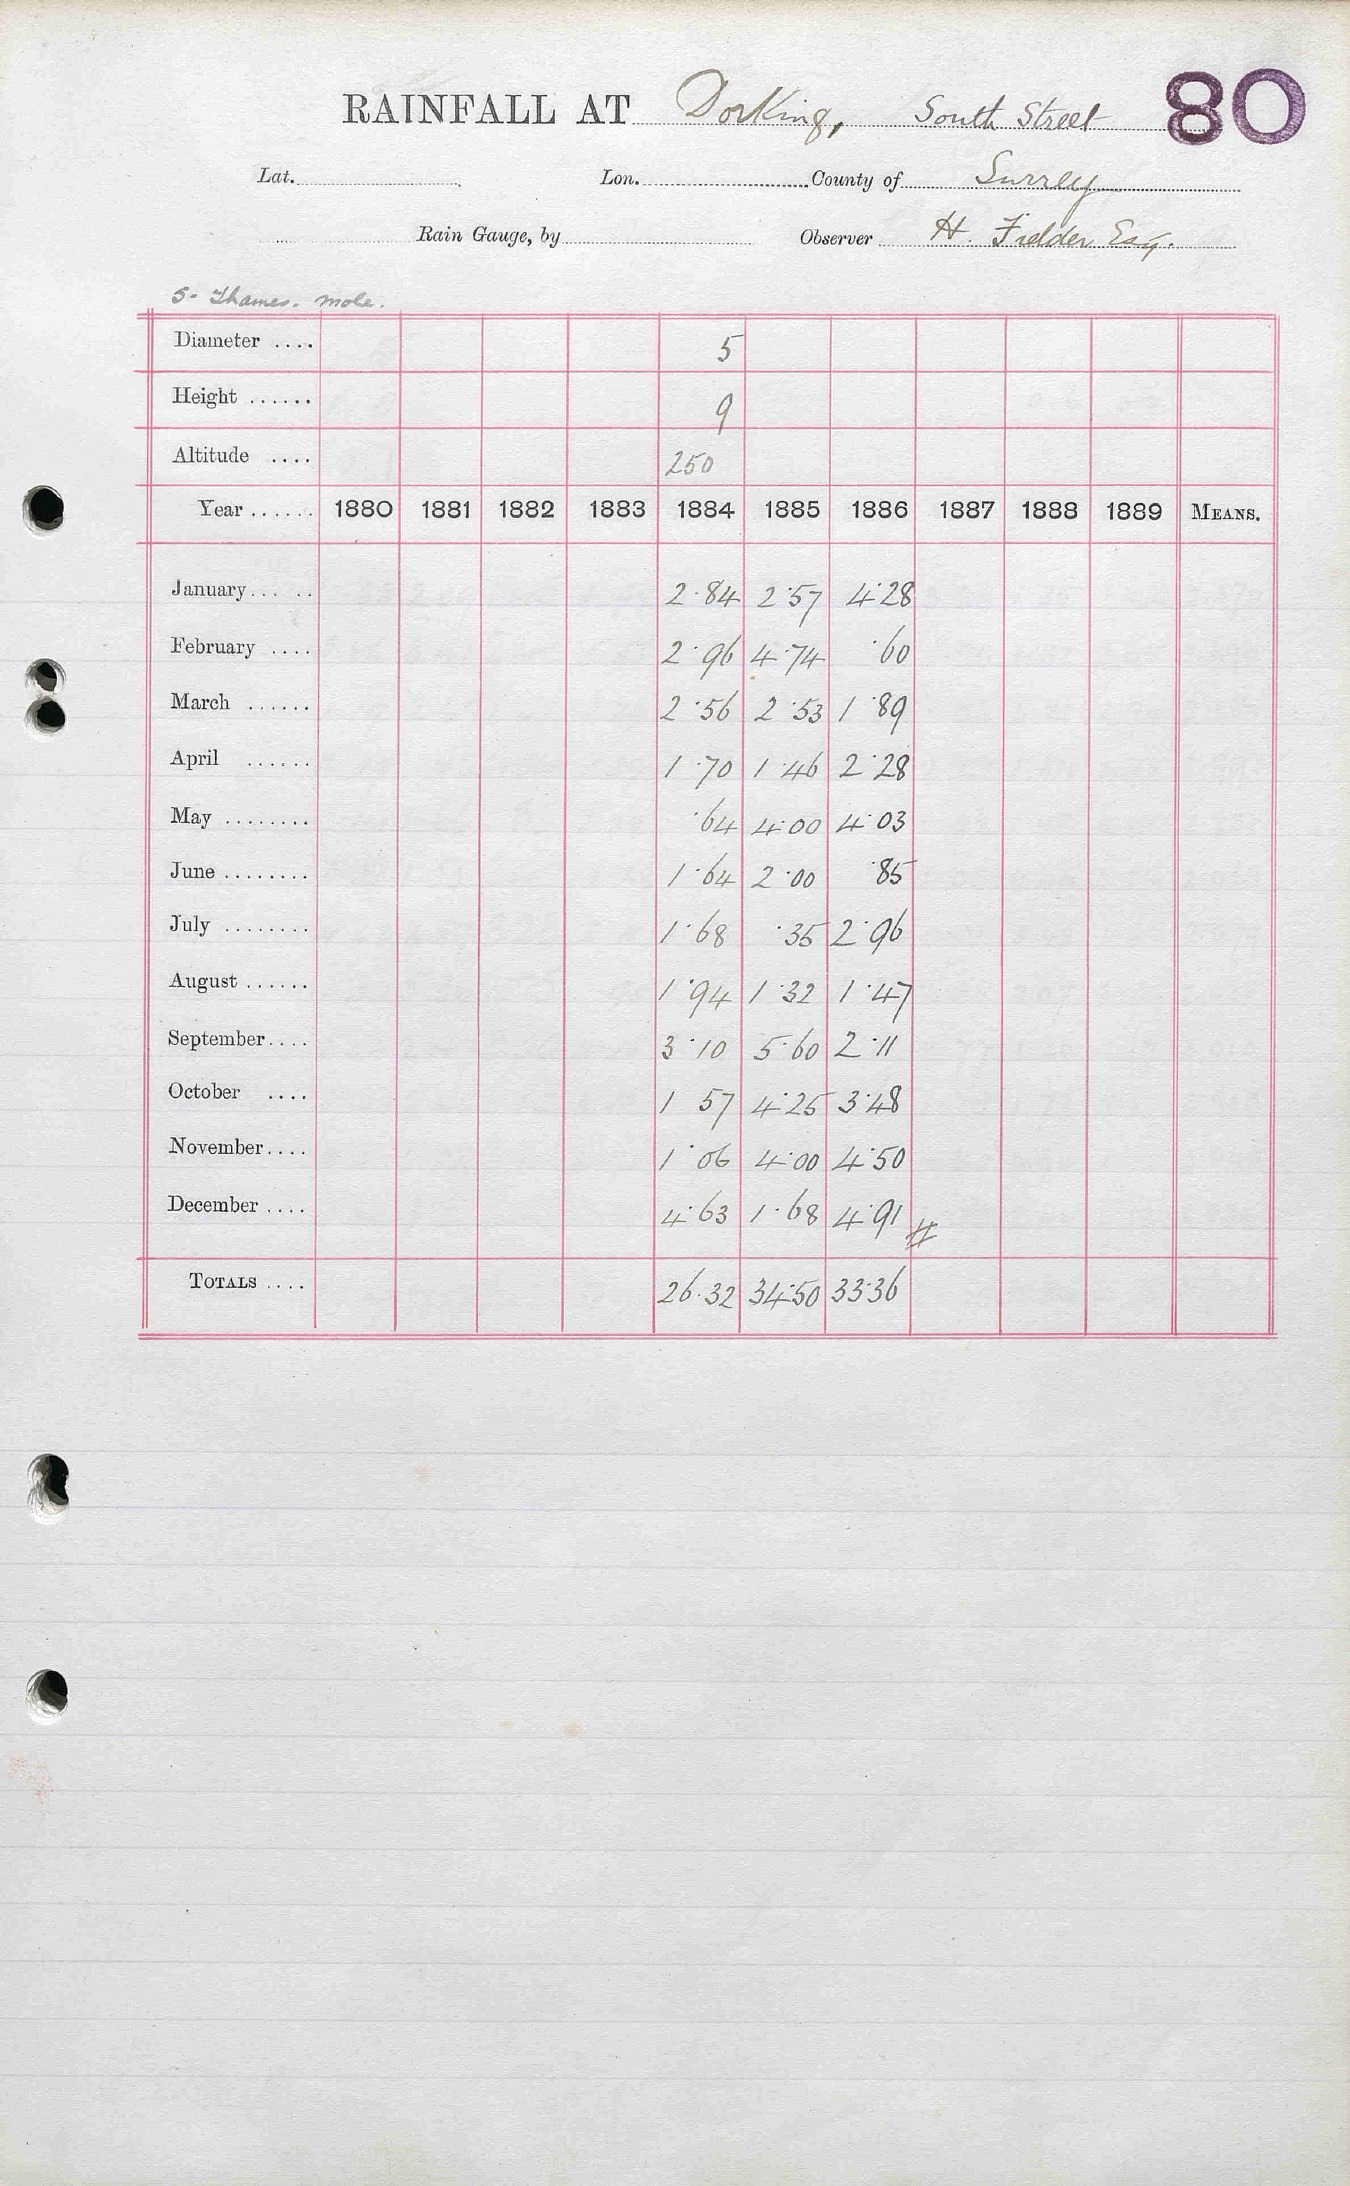 RAINFALL AT Dorking, South Street 80
Lat. Lon. County of Surrey
Rain Gauge, by Observer H. Fielder Esq.
5- Thames. Mole.
Diameter .... 5
Height ...... 9
Altitude .... 250
Year ...... 1880 1881 1882 1883 1884 1885 1886 1887 1888 1889 MEANS.
January... .. 2.84 2.57 4.28
February .... 2.96 4.74 .60
March ...... 2.56 2.53 1.89
April ...... 1.70 1.46 2.28
May ........ .64 4.00 4.03
June ........ 1.64 2.00 .85
July ........ 1.68 .35 2.96
August ...... 1.94 1.32 1.47
September.... 3.10 5.60 2.11
October .... 1 57 4.25 3.48
November.... 1.06 4.00 4.50
December .... 4.63 1.68 4.91 #
TOTALS .... 26.32 34.50 33.36